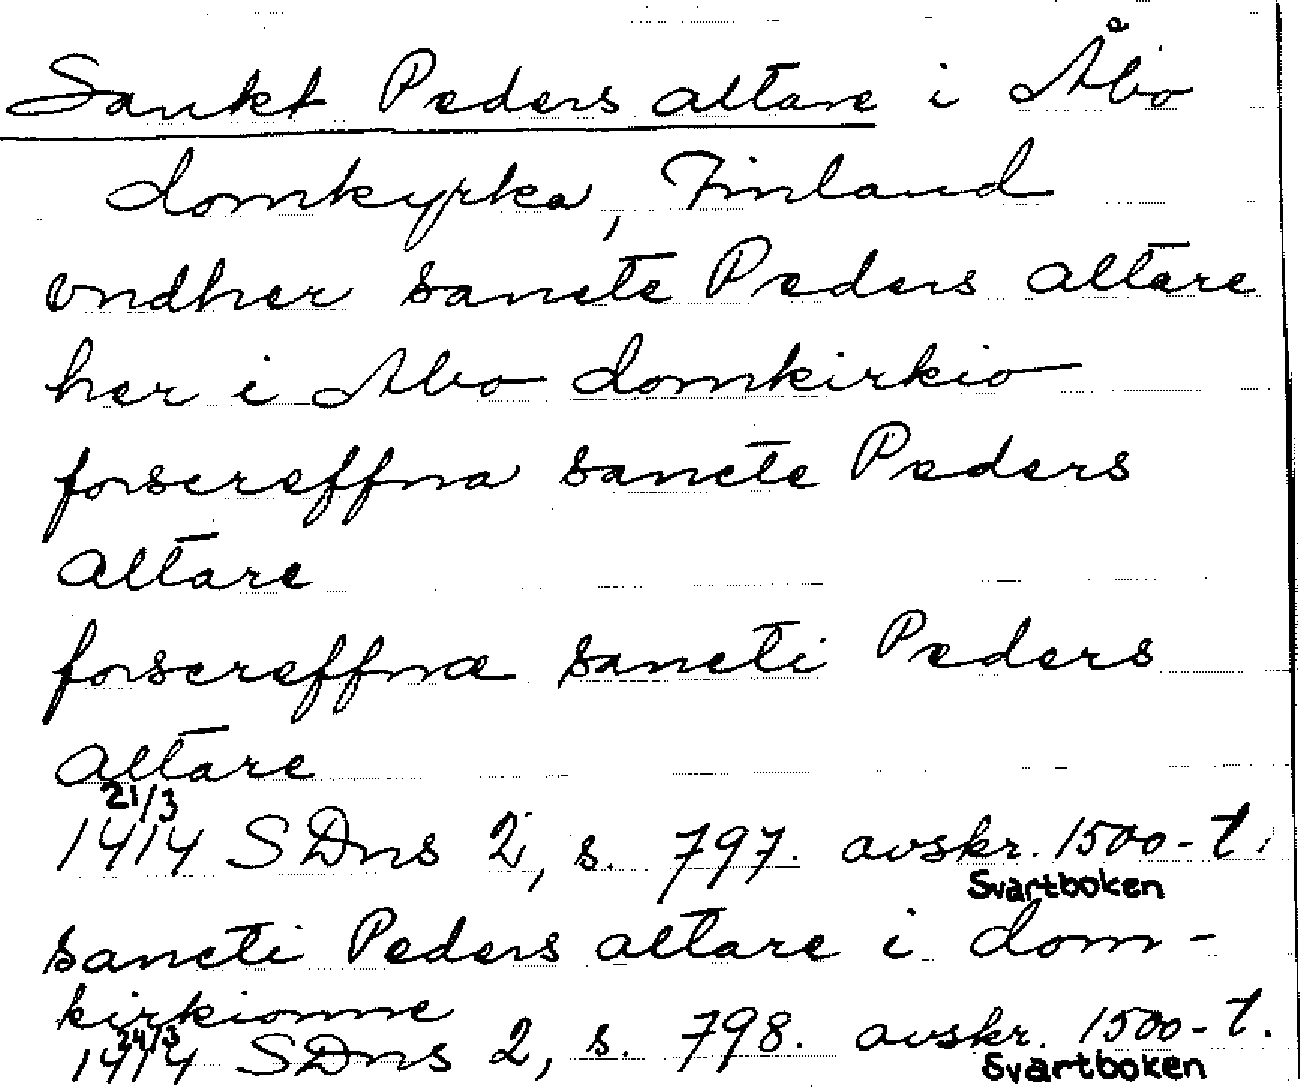 Sankt Peders altare i Åbo
domkyrka, Finland
vndher sancte Peders altare
her i Abo domkirkio
forscreffna sancte Peders
altare
forscreffnæ sancti Peders
altare
21/3
1414 SDns 2, s. 797. avskr. 1500-t.
Svartboken
sancti Peders altare i dom-
kirkionne
24/3
1414 SDns 2, s. 798. avskr. 1500-t.
Svartboken